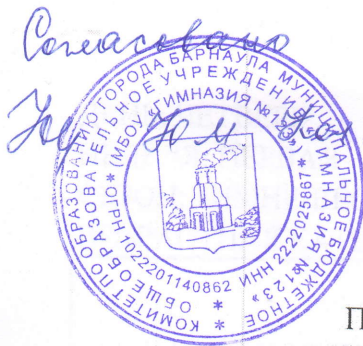 Согласовано
КОМИТЕТ ПО ОБРАЗОВАНИЮ ГОРОДА БАРНАУЛА МУНИЦИПАЛЬНОЕ БЮДЖЕТНОЕ
ОБЩЕОБРАЗОВАТЕЛЬНОЕ УЧРЕЖДЕНИЕ «ГИМНАЗИЯ №123»
(МБОУ «ГИМНАЗИЯ №123»)
ОГРН 1022201140862 ИНН 2222025867
П